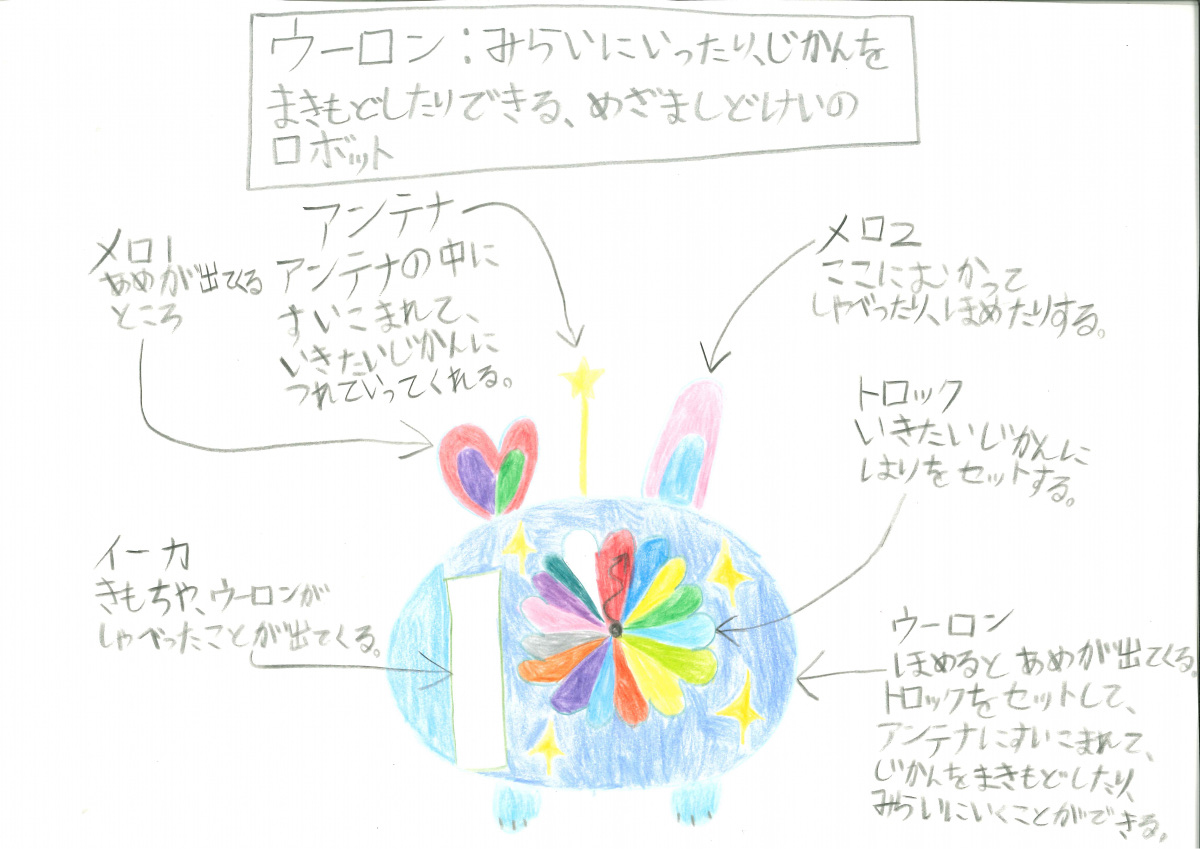 ウーロン：みらいにいったり、じかんを
まきもどしたりできる、めざましどけいの
ロボット
アンテナ
アンテナの中に
すいこまれて、
いきたいじかんに
つれていってくれる。
メロ1
あめが出てくる
ところ
メロ2
ここにむかって
しゃべったり、ほめたりする。
トロック
いきたいじかんに
はりをセットする。
イーカ
きもちや、ウーロンが
しゃべったことが出てくる。
ウーロン
ほめると あめが出てくる。
トロックをセットして、
アンテナにすいこまれて、
じかんをまきもどしたり、
みらいにいくことができる。